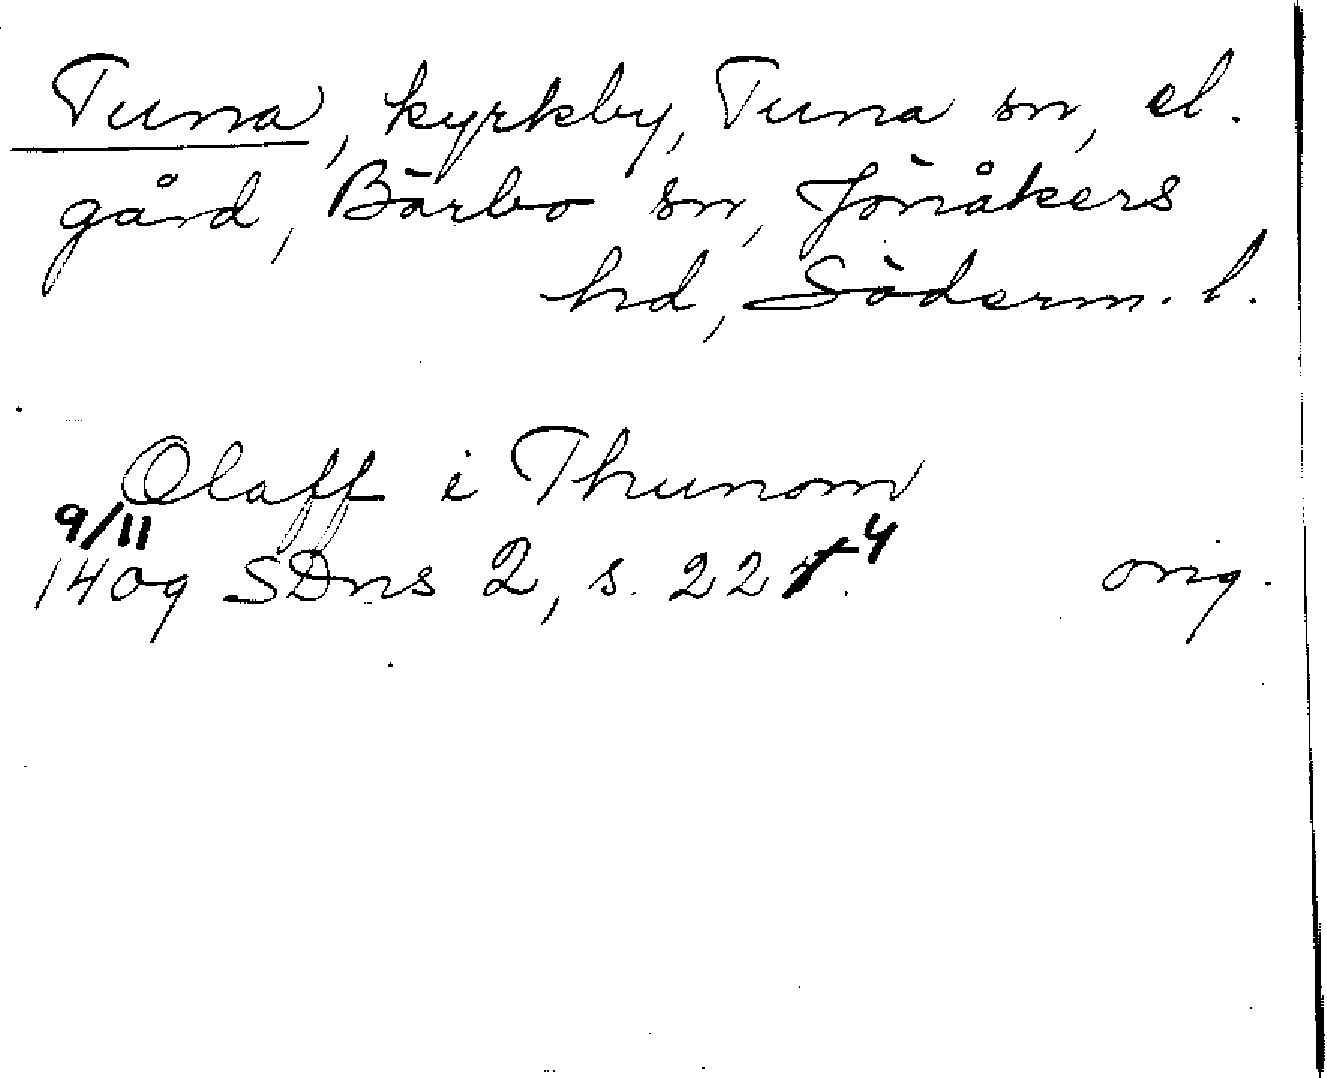 Tuna, kyrkby, Tuna sn, el.
gård, Bärbo sn, Jönåkers
hd, Söderm. l.
Olaff i Thunom
9/11
1409 SDns 2, s. 224. orig.